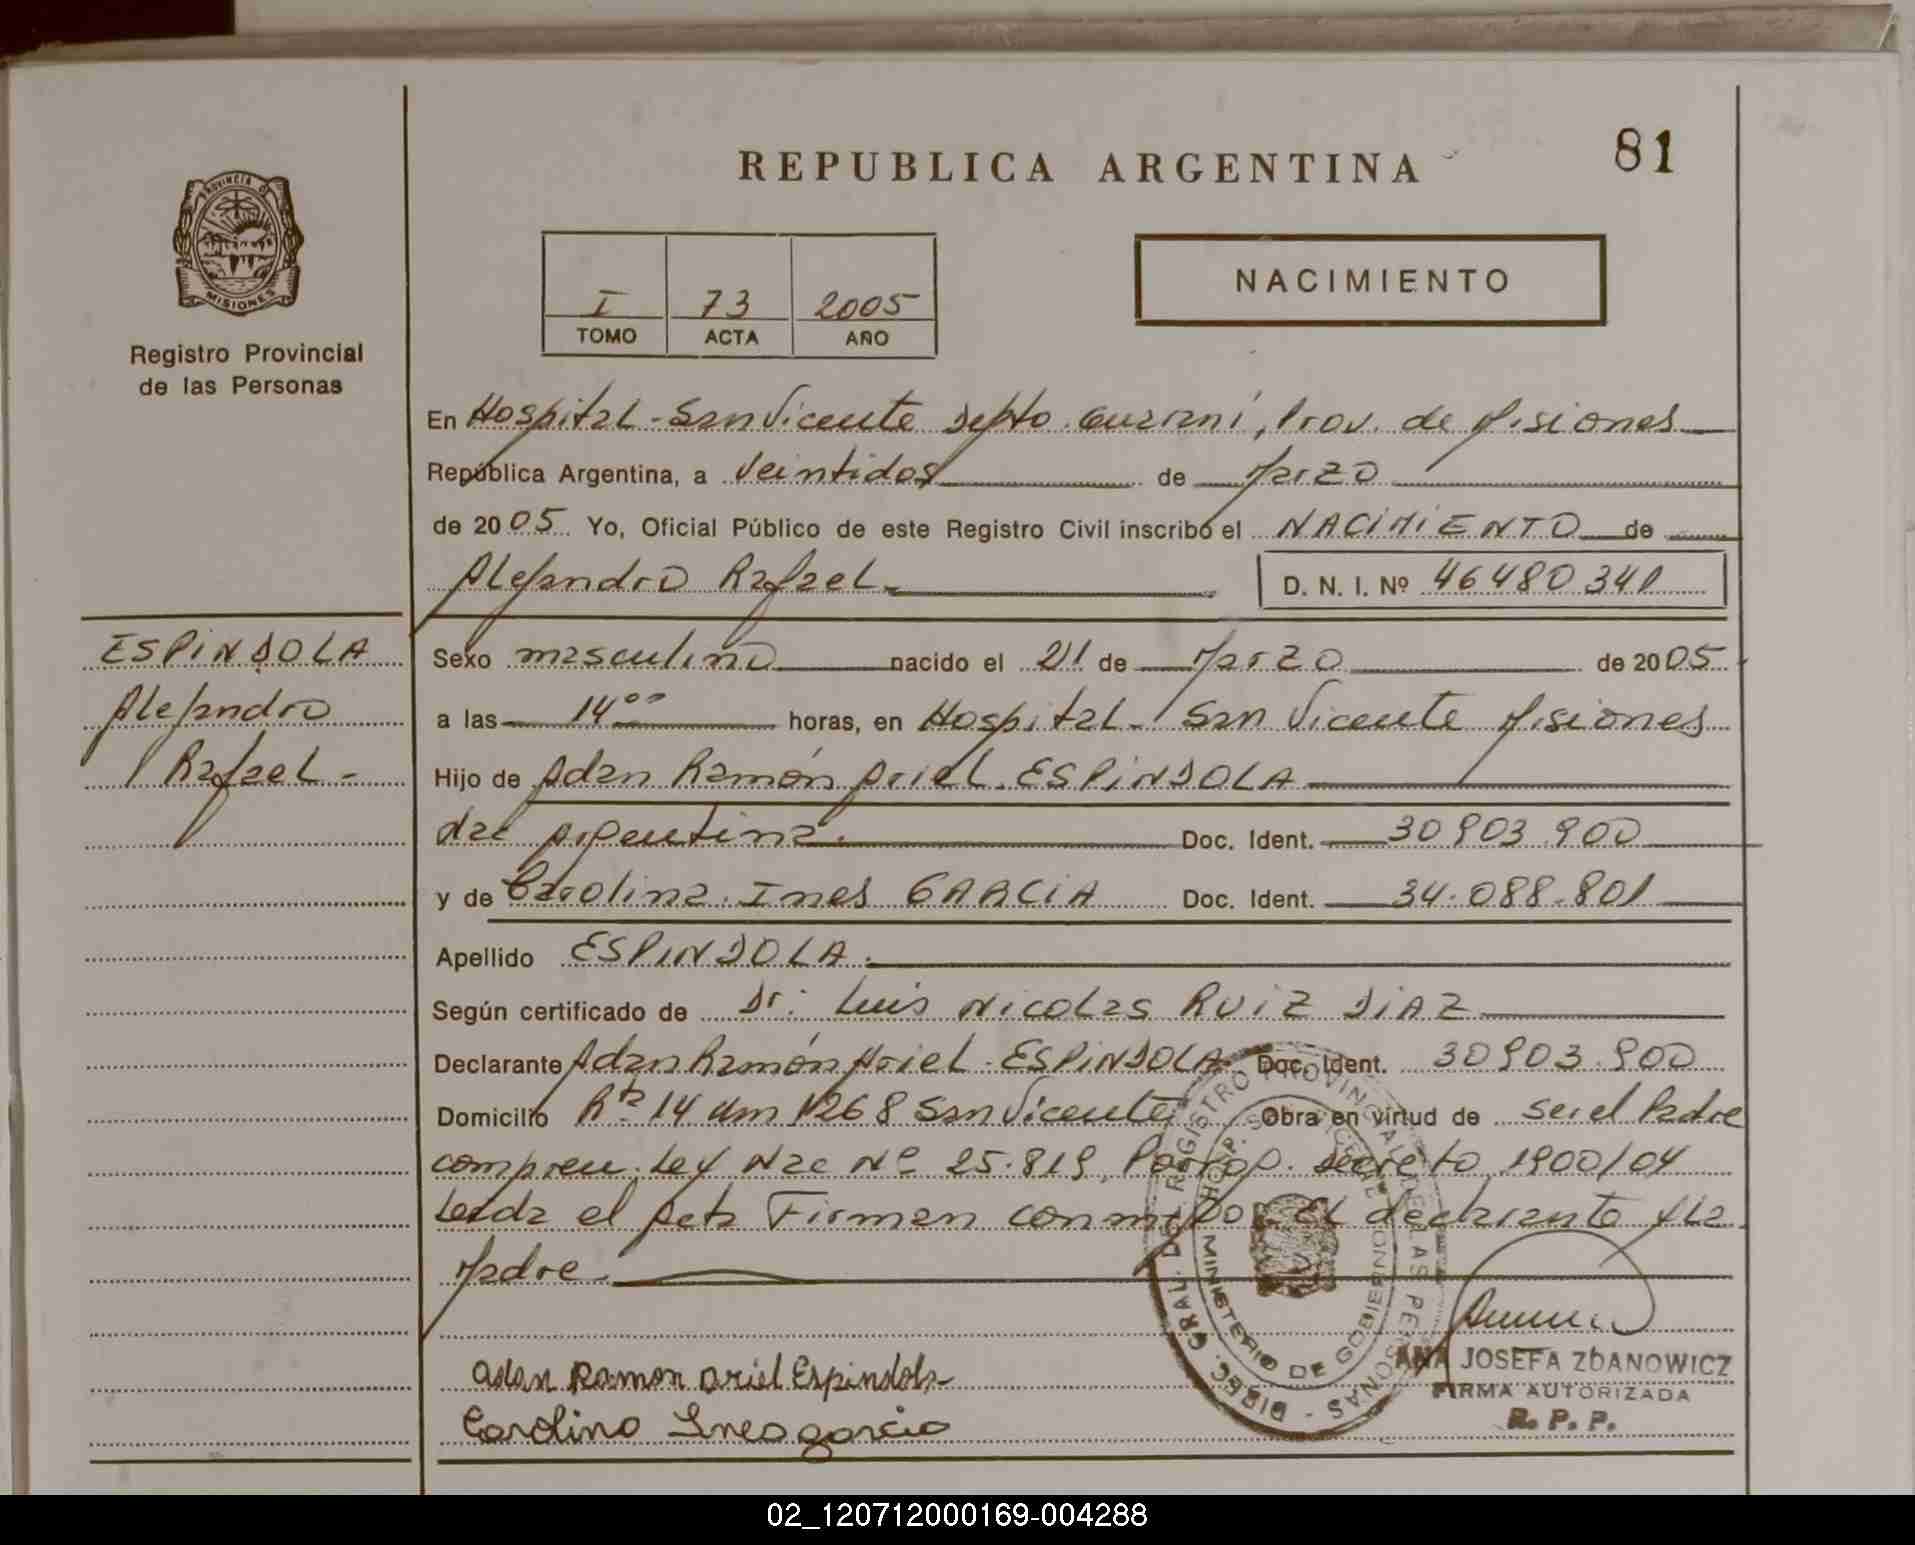 REPUBLICA ARGENTINA
81
PROVINCIA DE
MISIONES
Registro Provincial
de las Personas
I 73 2005
TOMO ACTA AÑO
NACIMIENTO
En Hospital - San Vicente Depto. Guaraní, Prov. de Misiones
República Argentina, a Veintidos de Marzo
de 2005 Yo, Oficial Público de este Registro Civil inscribo el NACIMIENTO de
Alejandro Rafael.
D. N. I. Nº 46480341
ESPINDOLA
Alejandro
Rafael -
Sexo masculino nacido el 21 de Marzo de 2005
a las 14 00 horas, en Hospital - San Vicente Misiones
Hijo de Adan Ramón Ariel. ESPINDOLA
nac argentina. Doc. Ident. 30903.900
y de Carolina Ines GARCIA Doc. Ident. 34.088.801
Apellido ESPINDOLA.
Según certificado de Dr. Luis Nicolas RUIZ DIAZ
Declarante Adan Ramón Ariel - ESPINDOLA Doc. Ident. 30903.900
Domicilio Rta 14 Km 1268 San Vicente Obra en virtud de ser el Padre
compren. Ley Nac Nº 25.819, decreto 1900/04
Leida el Acta Firman conmigo El declarante y La
Madre
DIREC. GRAL. DEL REGISTRO PROVINCIAL DE LAS PERSONAS
HOSP. S. VICENTE
MINISTERIO DE GOBIERNO
Adan Ramon Ariel Espindola
Carolina Ines garcia
ANA JOSEFA ZDANOWICZ
FIRMA AUTORIZADA
R. P. P.
02_120712000169-004288